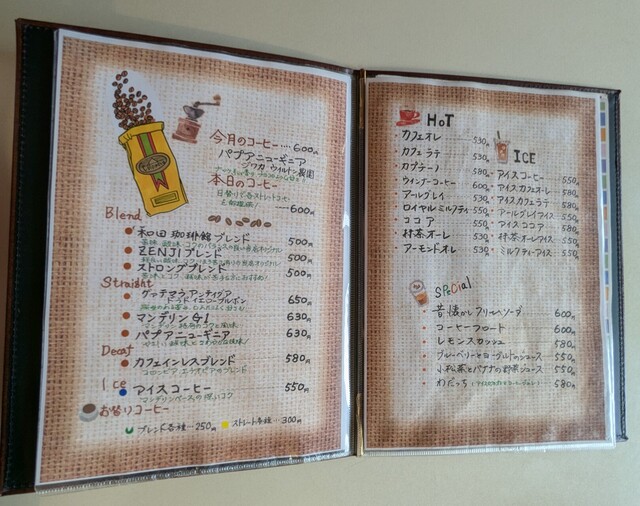 今月のコーヒー‥‥600円
パプアニューギニア
ジワカ・ウイルトン農園
本日のコーヒー
日替りで各ストレートコーヒー
600円
Blend
和田珈琲館ブレンド 500円
ZENJIブレンド 500円
ストロングブレンド 500円
Straight
グァテマラ アンティグア 650円
マンデリン G1 630円
パプアニューギニア 630円
Decaf
カフェインレスブレンド 580円
コロンビア、エチオピアのブレンド
Ice
アイスコーヒー 550円
マンデリンベースの深いコク
お替りコーヒー
ブレンド各種…250円 ストレート各種…300円
HoT
カフェオレ 530円
カフェラテ 530円
カプチーノ 580円
ウインナーコーヒー 600円
アールグレイ 530円
ロイヤルミルクティ 550円
ココア 550円
抹茶オーレ 530円
アーモンドオレ 530円
ICE
アイスコーヒー 550円
アイスカフェオーレ 580円
アイスカフェラテ 580円
アールグレイアイス 550円
アイスココア 580円
抹茶オーレアイス 550円
ミルクティーアイス 550円
SPeCial
昔懐かしクリームソーダ 600円
コーヒーフロート 600円
レモンスカッシュ 580円
ブルーベリーとヨーグルトのジュース 550円
小松菜とバナナの野菜ジュース 550円
わだっち 580円